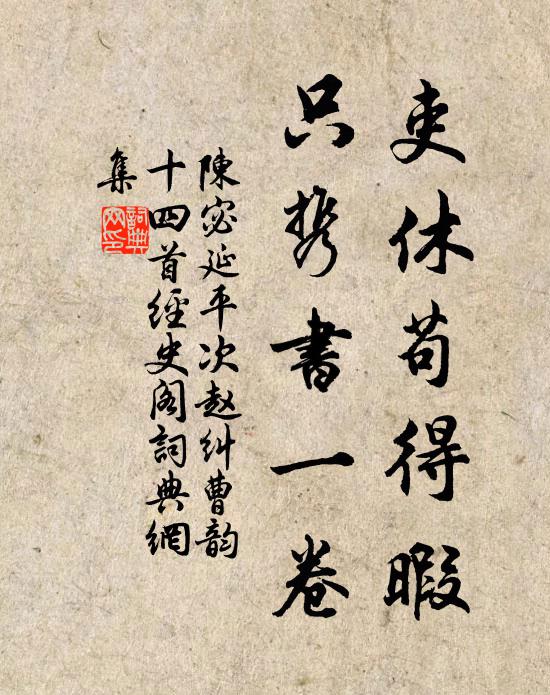 吏休苟得暇
只携書一卷
陳宓延平次赵纠曹韵
十四首經史阁詞典網
集
詞典网印